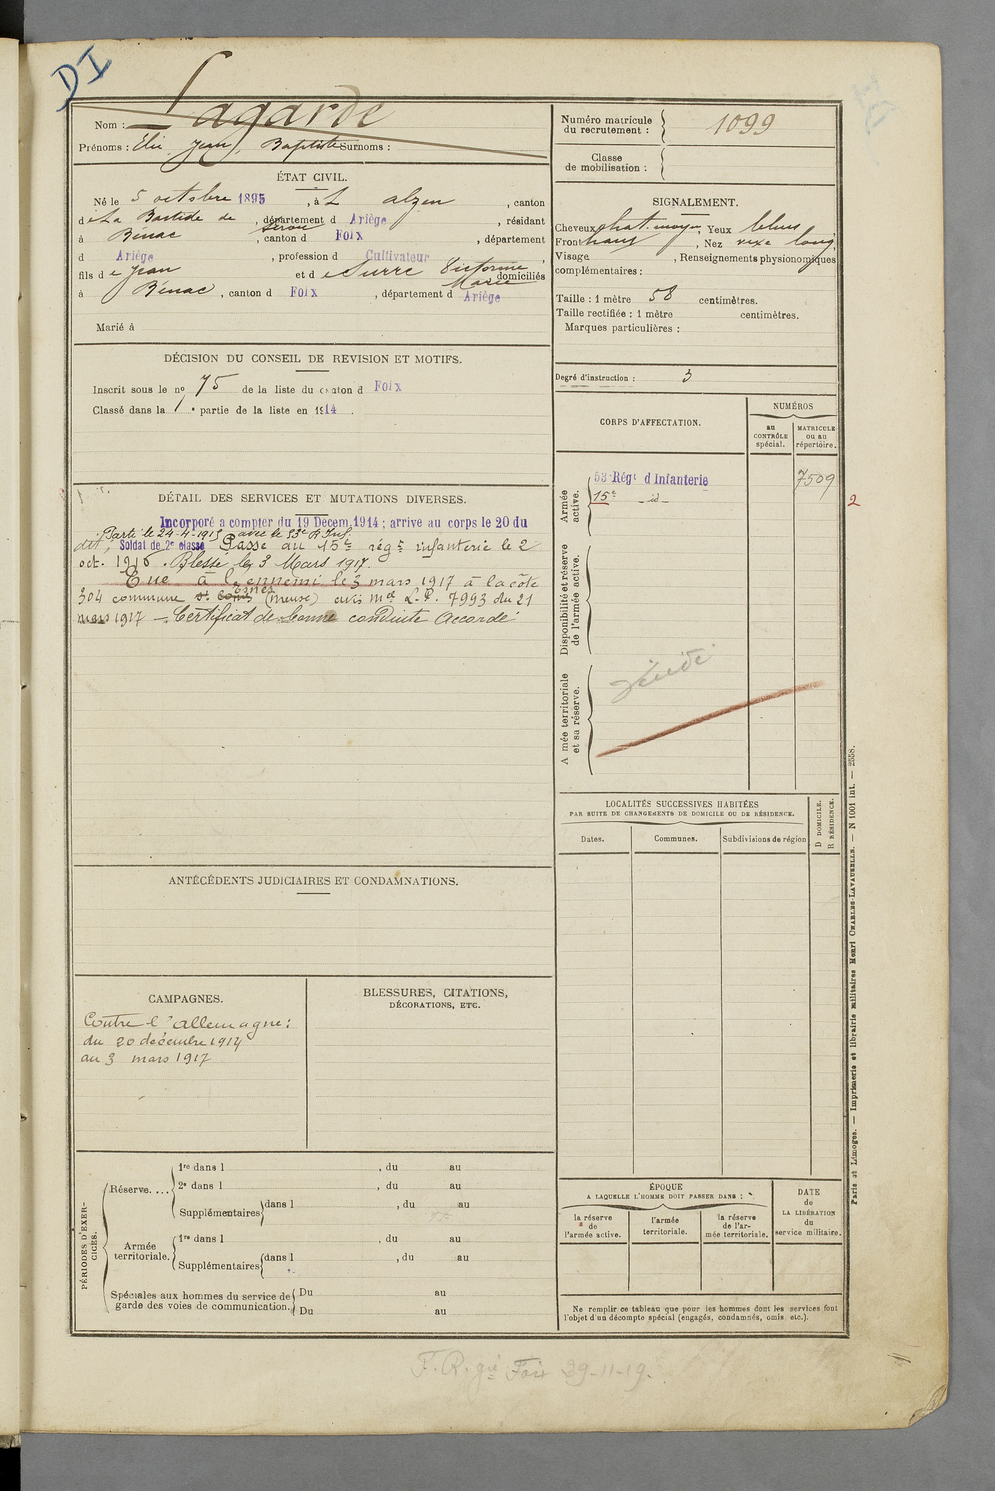 DI
Nom : Lagarde
Prénoms : Elie Jean, Baptiste Surnoms :
ÉTAT CIVIL.
Né le 5 octobre 1895, à L alzen, canton
de La Bastide de Sérou, département d Ariège, résidant
à Bénac, canton d Foix, département
d Ariège, profession d Cultivateur,
fils de Jean et de Surre Victorine Marie domiciliés
à Bénac, canton d Foix, département d Ariège
Marié à
DÉCISION DU CONSEIL DE REVISION ET MOTIFS.
Inscrit sous le no 75 de la liste du canton d Foix
Classé dans la 1e partie de la liste en 1914.
DÉTAIL DES SERVICES ET MUTATIONS DIVERSES.
Incorporé a compter du 19 Decem. 1914 ; arrive au corps le 20 du
Parti le 24-4-1915 avec le 53e R Inf.
dit, Soldat de 2e classe Passé au 15e régt infanterie le 2
oct. 1916. Blessé le 3 Mars 1917.
Tué à l'ennemi le 3 mars 1917 à la côte
304 commune d' Esnes (Meuse) avis Mel L.P. 7993 du 21
mars 1917 — Certificat de bonne conduite Accordé
ANTÉCÉDENTS JUDICIAIRES ET CONDAMNATIONS.
CAMPAGNES.
Contre l'allemagne :
du 20 décembre 1914
au 3 mars 1917
BLESSURES, CITATIONS,
DÉCORATIONS, ETC.
PÉRIODES D'EXERCICES.
Réserve....
1re dans l , du au
2e dans l , du au
Supplémentaires dans l , du au
Armée territoriale.
1re dans l , du au
Supplémentaires dans l , du au
Spéciales aux hommes du service de garde des voies de communication.
Du au
Du au
Numéro matricule du recrutement : 1099
Classe de mobilisation :
SIGNALEMENT.
Cheveux chat. moyen, Yeux bleus
Front haut, Nez vexe long
Visage , Renseignements physionomiques
complémentaires :
Taille : 1 mètre 58 centimètres.
Taille rectifiée : 1 mètre centimètres.
Marques particulières :
Degré d'instruction : 3
CORPS D'AFFECTATION.
NUMÉROS
au CONTRÔLE spécial.
MATRICULE ou au répertoire.
Armée active.
53e Régt d'Infanterie 7509
15e — id — 2
Disponibilité et réserve de l'armée active.
Armée territoriale et sa réserve.
LOCALITÉS SUCCESSIVES HABITÉES
PAR SUITE DE CHANGEMENTS DE DOMICILE OU DE RÉSIDENCE.
Dates. Communes. Subdivisions de région
D DOMICILE. R RÉSIDENCE.
ÉPOQUE
A LAQUELLE L'HOMME DOIT PASSER DANS :
la réserve de l'armée active.
l'armée territoriale.
la réserve de l'armée territoriale.
DATE de LA LIBÉRATION du service militaire.
Ne remplir ce tableau que pour les hommes dont les services font
l'objet d'un décompte spécial (engagés, condamnés, omis, etc.).
Paris et Limoges. — Imprimerie et librairie militaires Henri CHARLES-LAVAUZELLE. — N 1001 int. — 2558.
F. R. gie Foix 29-11-19.